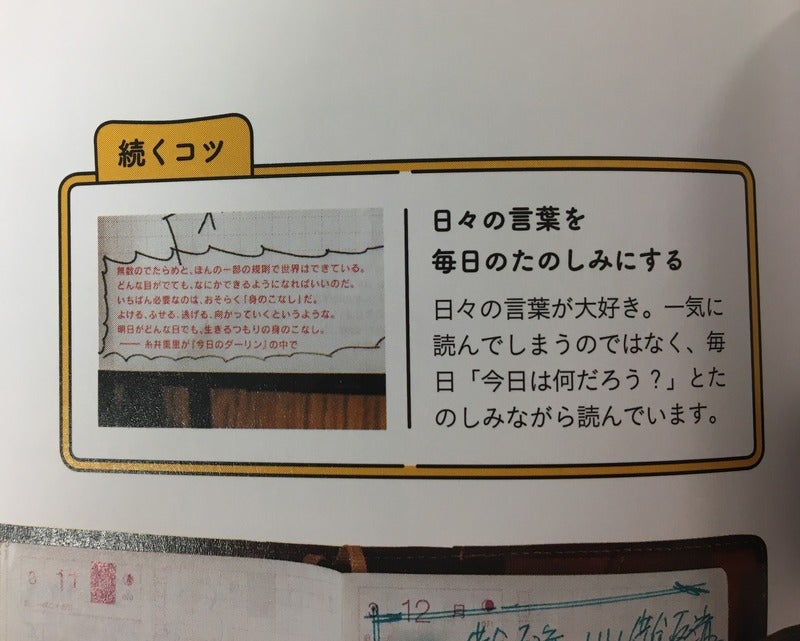 続くコツ
無数のでたらめと、ほんの一部の規則で世界はできている。
どんな目がでても、なにかできるようになればいいのだ。
いちばん必要なのは、おそらく「身のこなし」だ。
よける、ふせる、逃げる、向かっていくというような。
明日がどんな日でも、生きるつもりの身のこなし。
── 糸井重里が『今日のダーリン』の中で
日々の言葉を
毎日のたのしみにする
日々の言葉が大好き。一気に
読んでしまうのではなく、毎
日「今日は何だろう？」とた
のしみながら読んでいます。
3 11
3 12 月